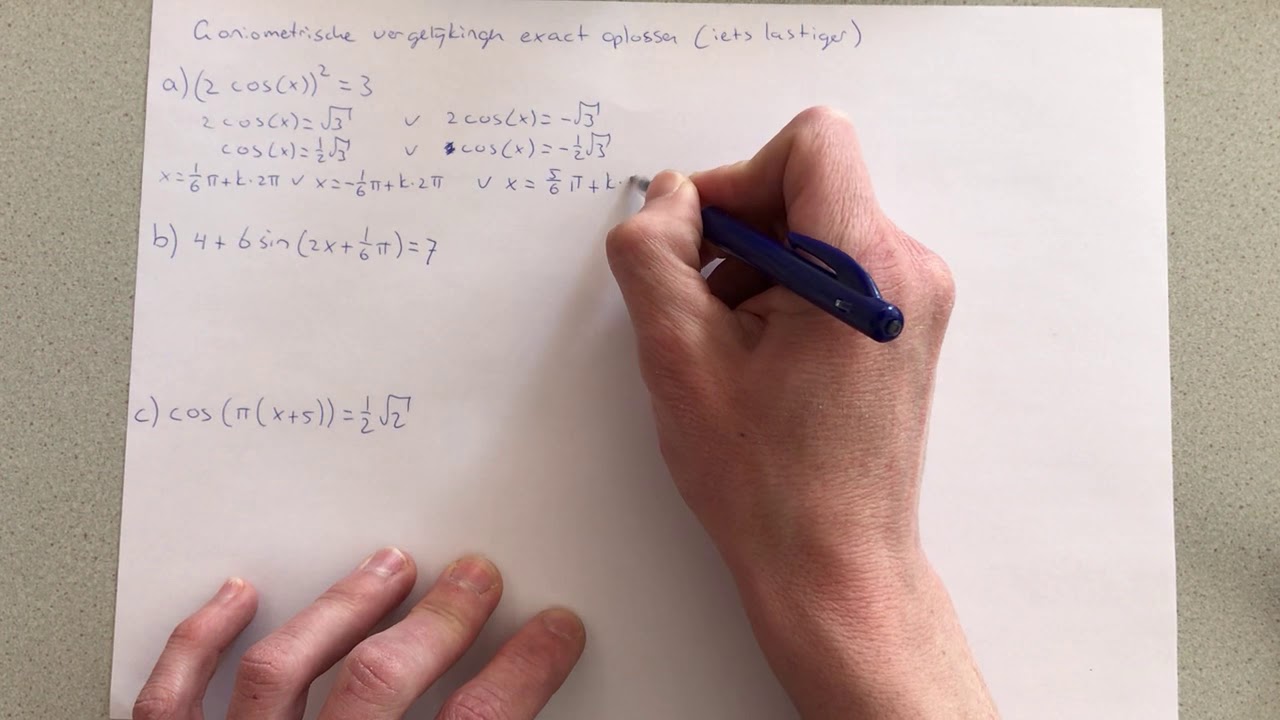 Goniometrische vergelijkingen exact oplossen (iets lastiger)
a) (2 cos(x))² = 3
2 cos(x) = √3 ∨ 2 cos(x) = -√3
cos(x) = ½√3 ∨ cos(x) = -½√3
x = 1/6 π + k · 2π ∨ x = -1/6 π + k · 2π ∨ x = 5/6 π + k ·
b) 4 + 6 sin(2x + 1/6 π) = 7
c) cos(π(x+5)) = ½√2